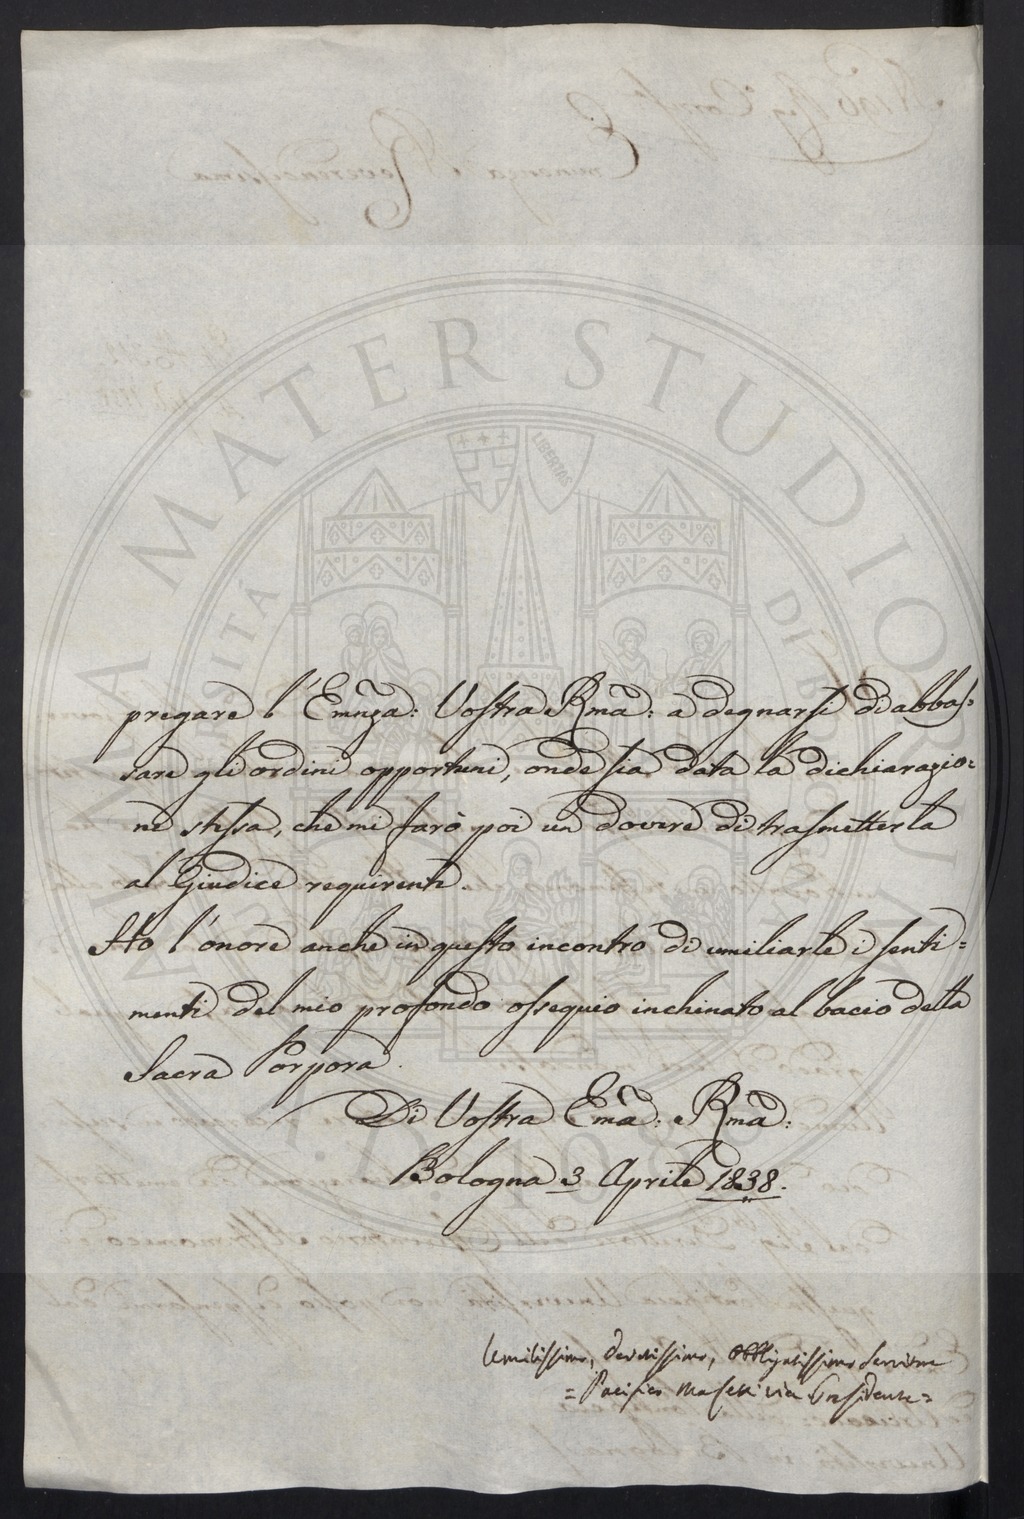 ALMA MATER STUDIORUM
LIBERTAS
A.D. 1088
pregare l'Emnza: Vostra Rma: a degnarsi di abbas=
sare gli ordini opportuni, onde sia data la dichiarazio=
ne stessa, che mi farò poi un dovere di trasmetterla
al Giudice requirente.
Ho l'onore anche in questo incontro di umiliarle i senti=
menti del mio profondo ossequio inchinato al bacio della
Sacra Porpora.
Di Vostra Ema: Rma:
Bologna 3 Aprile 1838.
Umilissimo, devotissimo, obbligatissimo Servitore
= Pacifico Masetti vice Presidente =